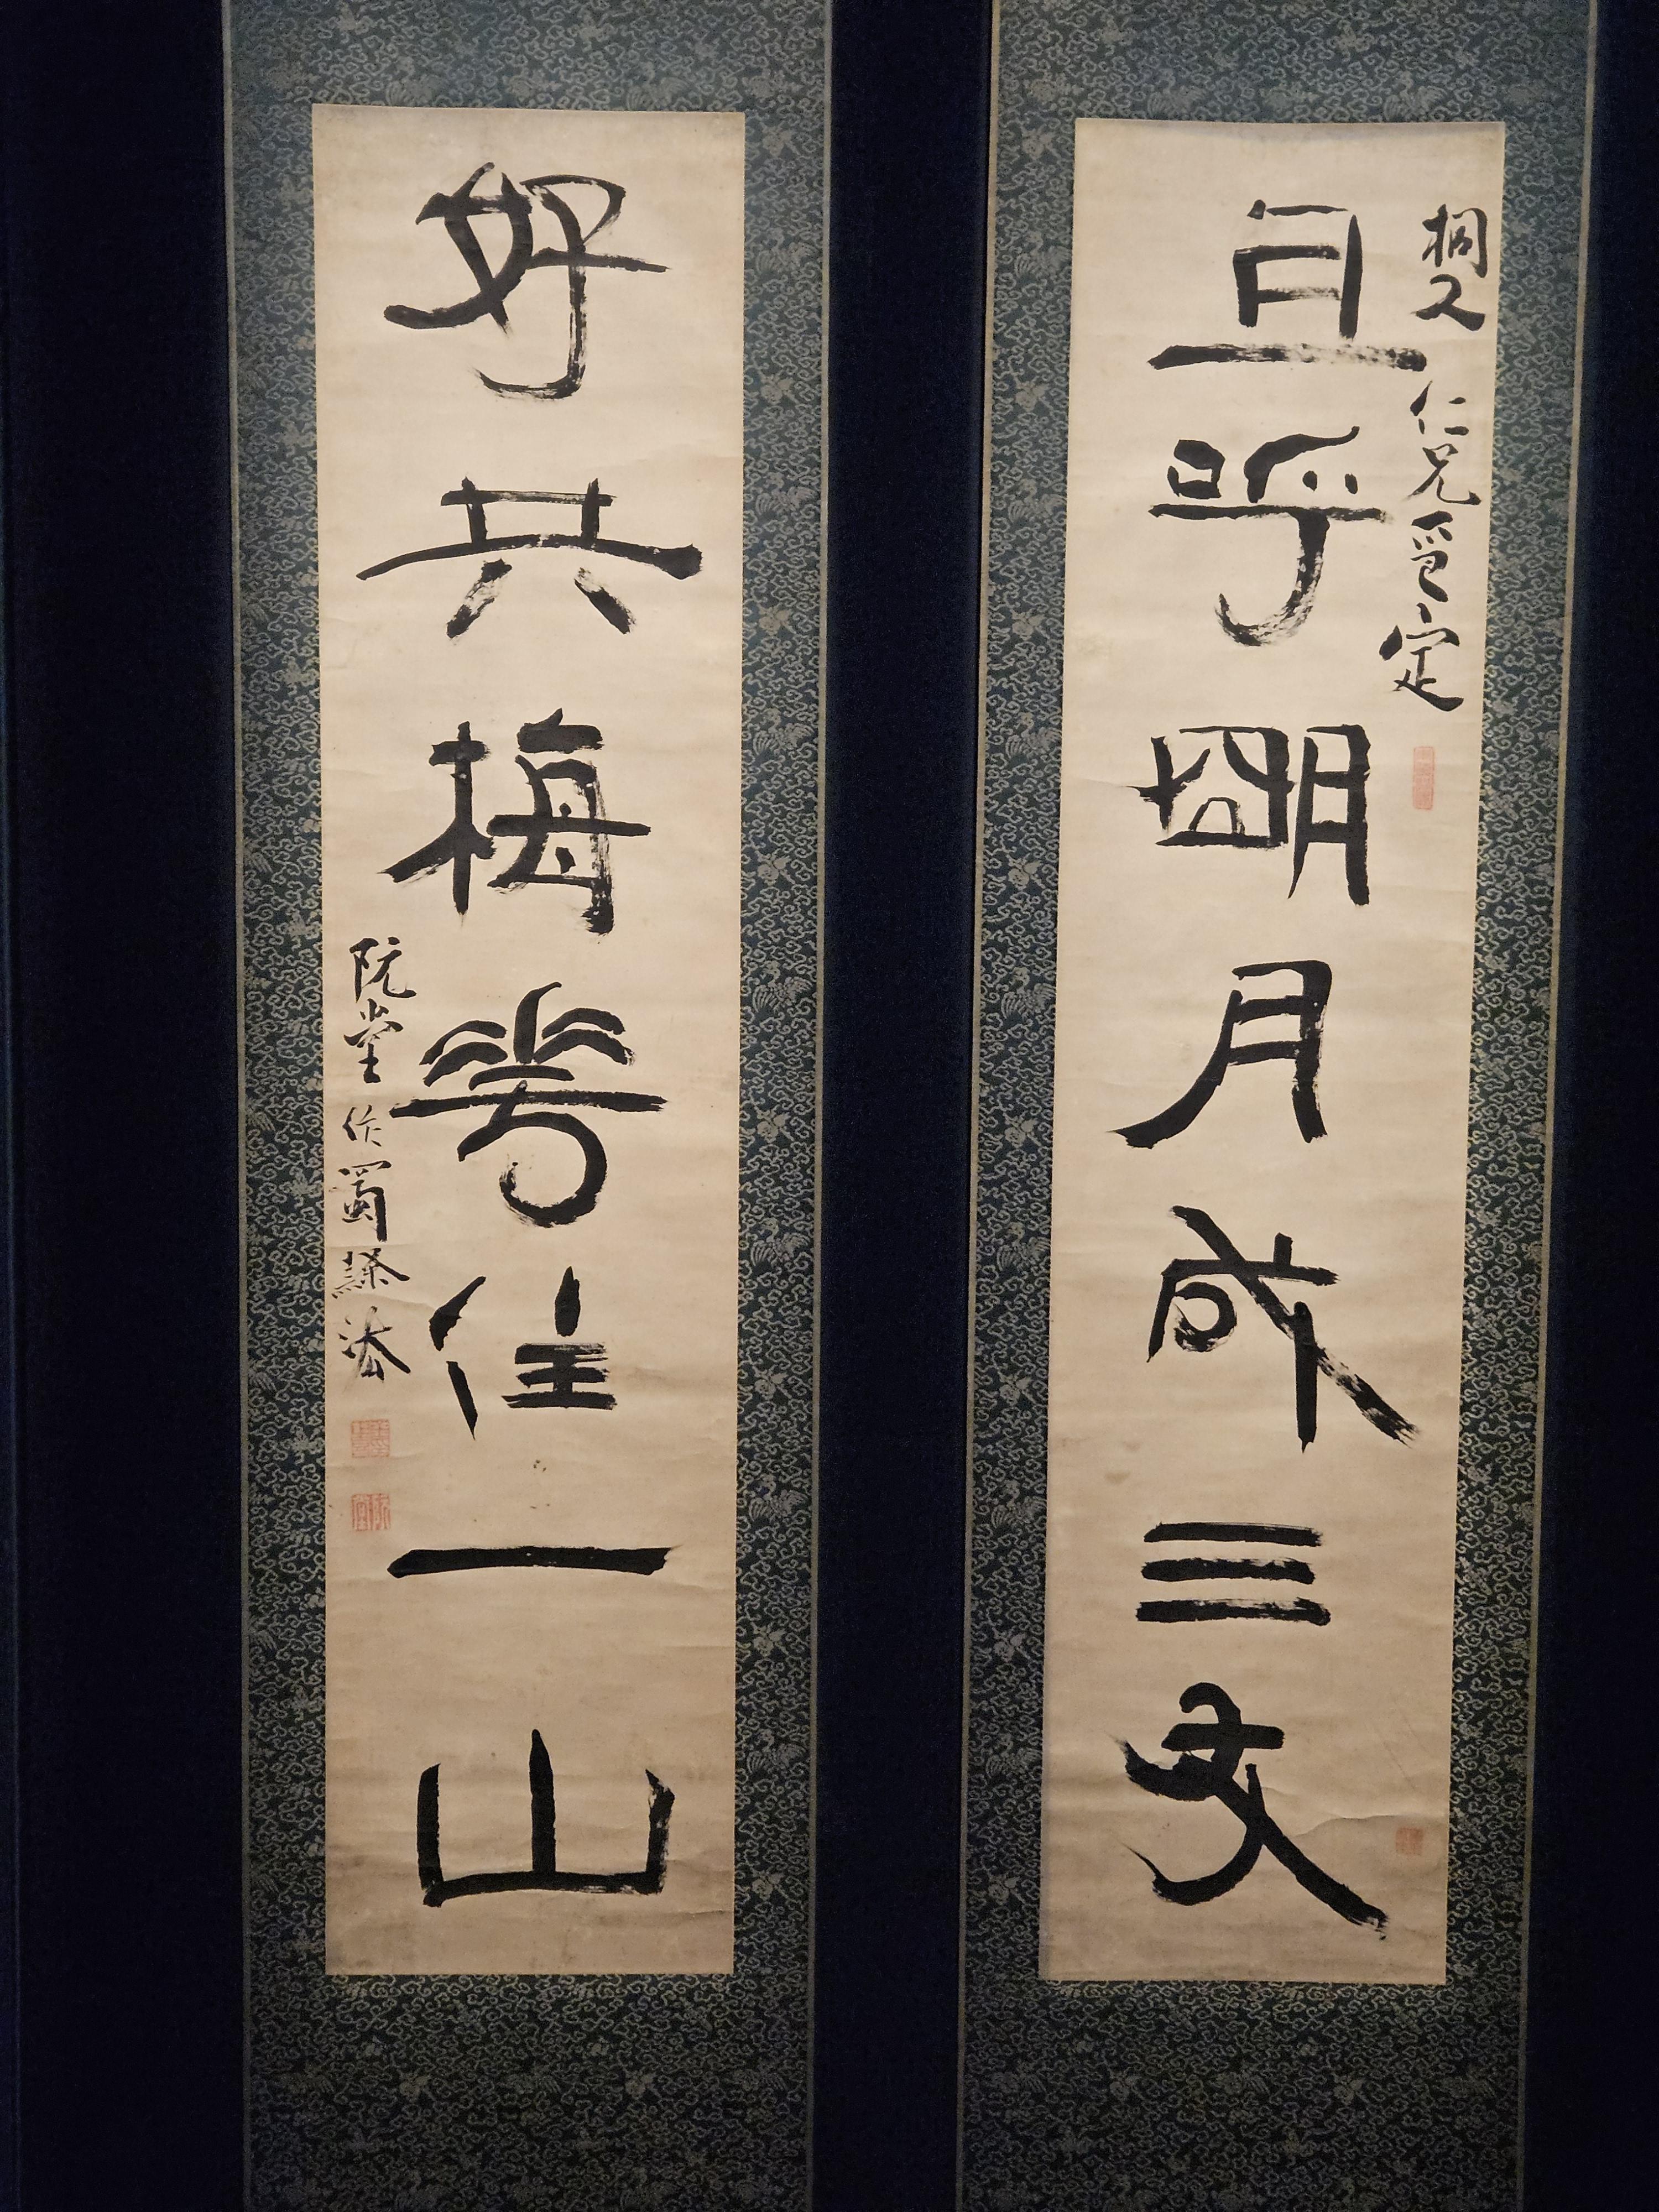 桐
仁兄
定
且呼明月成三友
好共梅花住一山
阮堂作蜀隸法